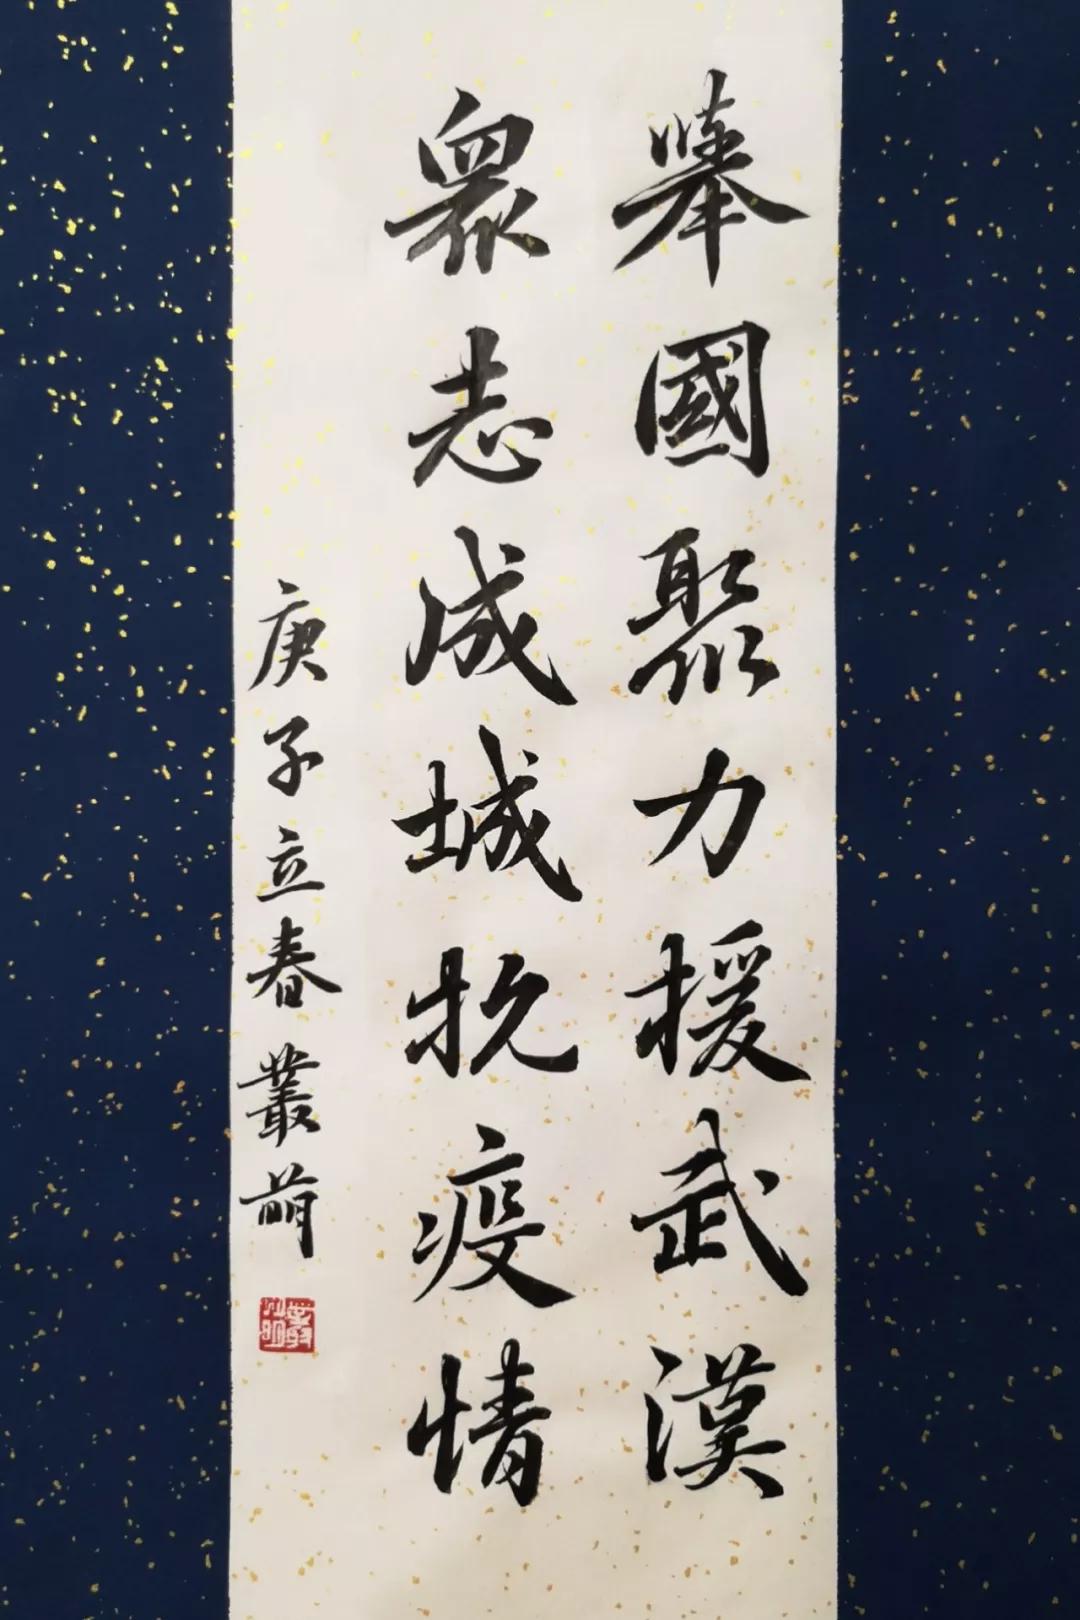 舉國聚力援武漢
眾志成城抗疫情
庚子立春叢萌
叢萌